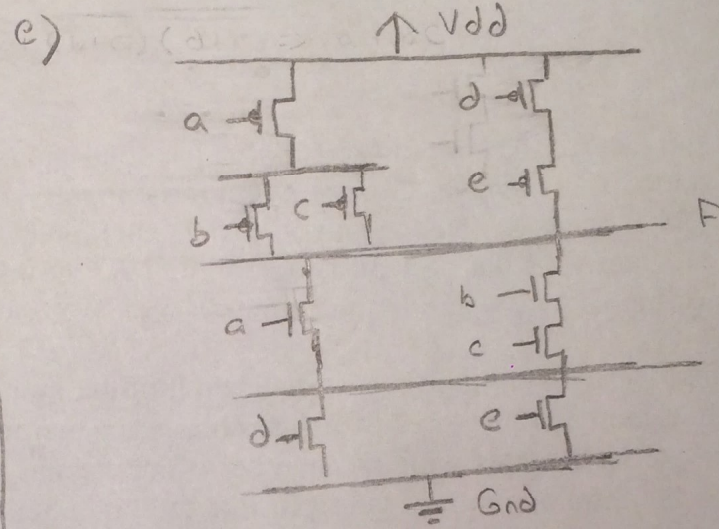 e)
Vdd
a
d
b
c
e
F
a
b
c
d
e
Gnd